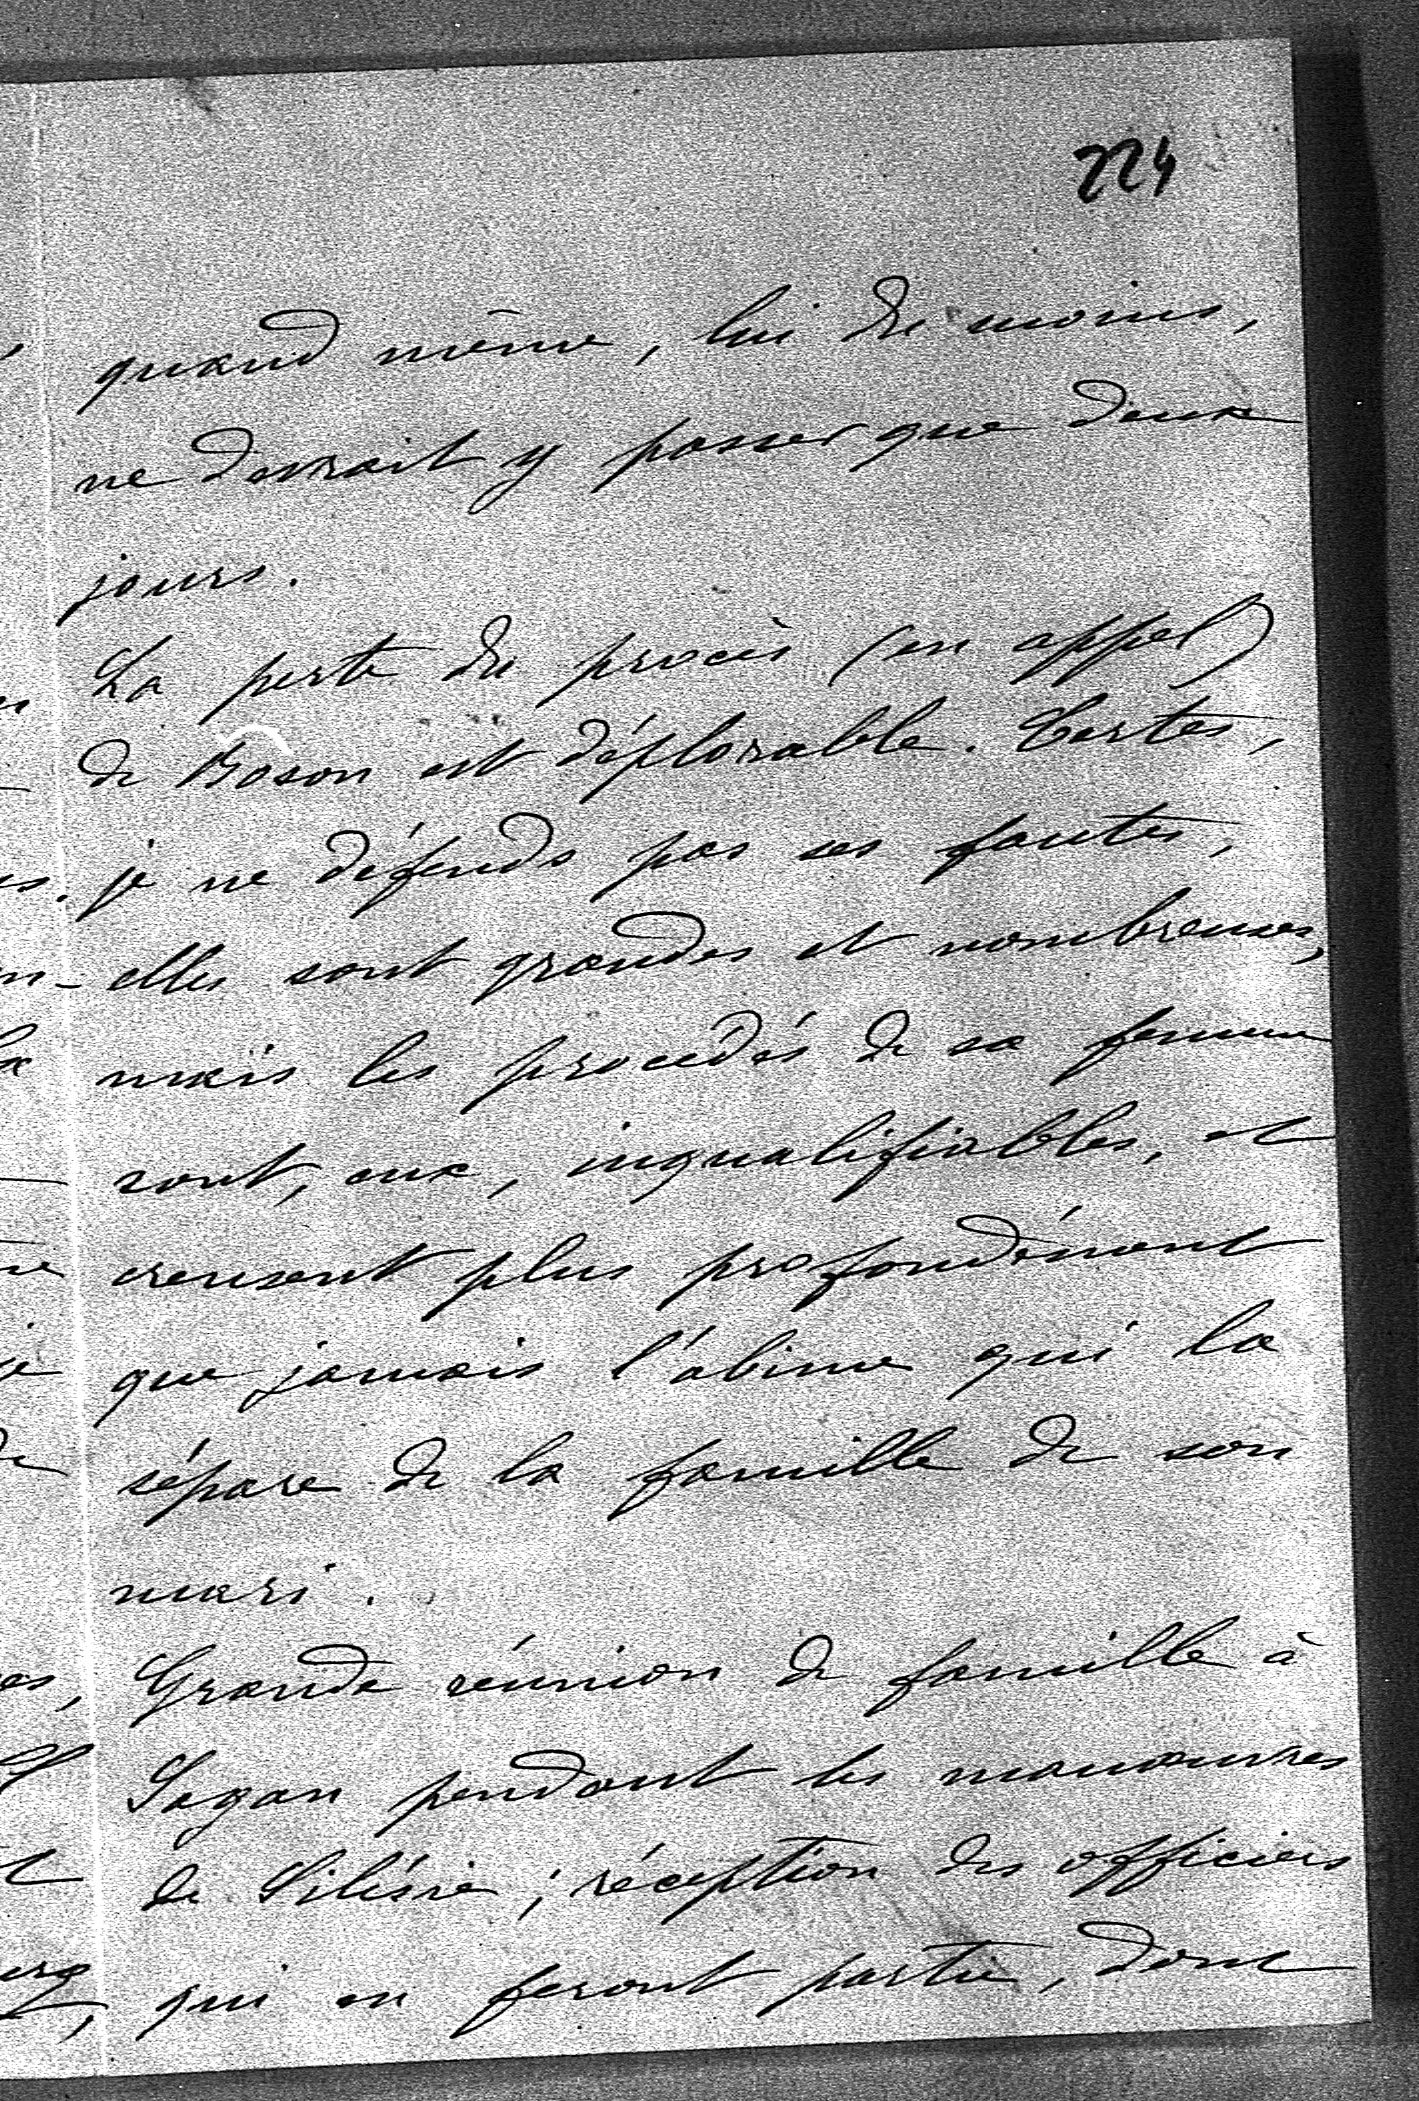 224
quand même, lui du moins,
ne devrait y passer que deux
jours.
La perte du procès (en appel)
de Boson est déplorable. Certes,
je ne défends pas ses fautes,
elles sont grandes et nombreuses,
mais les procédés de sa femme
sont, eux, inqualifiables, et
creusent plus profondément
que jamais l'abime qui la
sépare de la famille de son
mari.
Grande réunion de famille à
Sagan pendant les manœuvres
de Silésie ; réception des officiers
qui en feront partie, dont